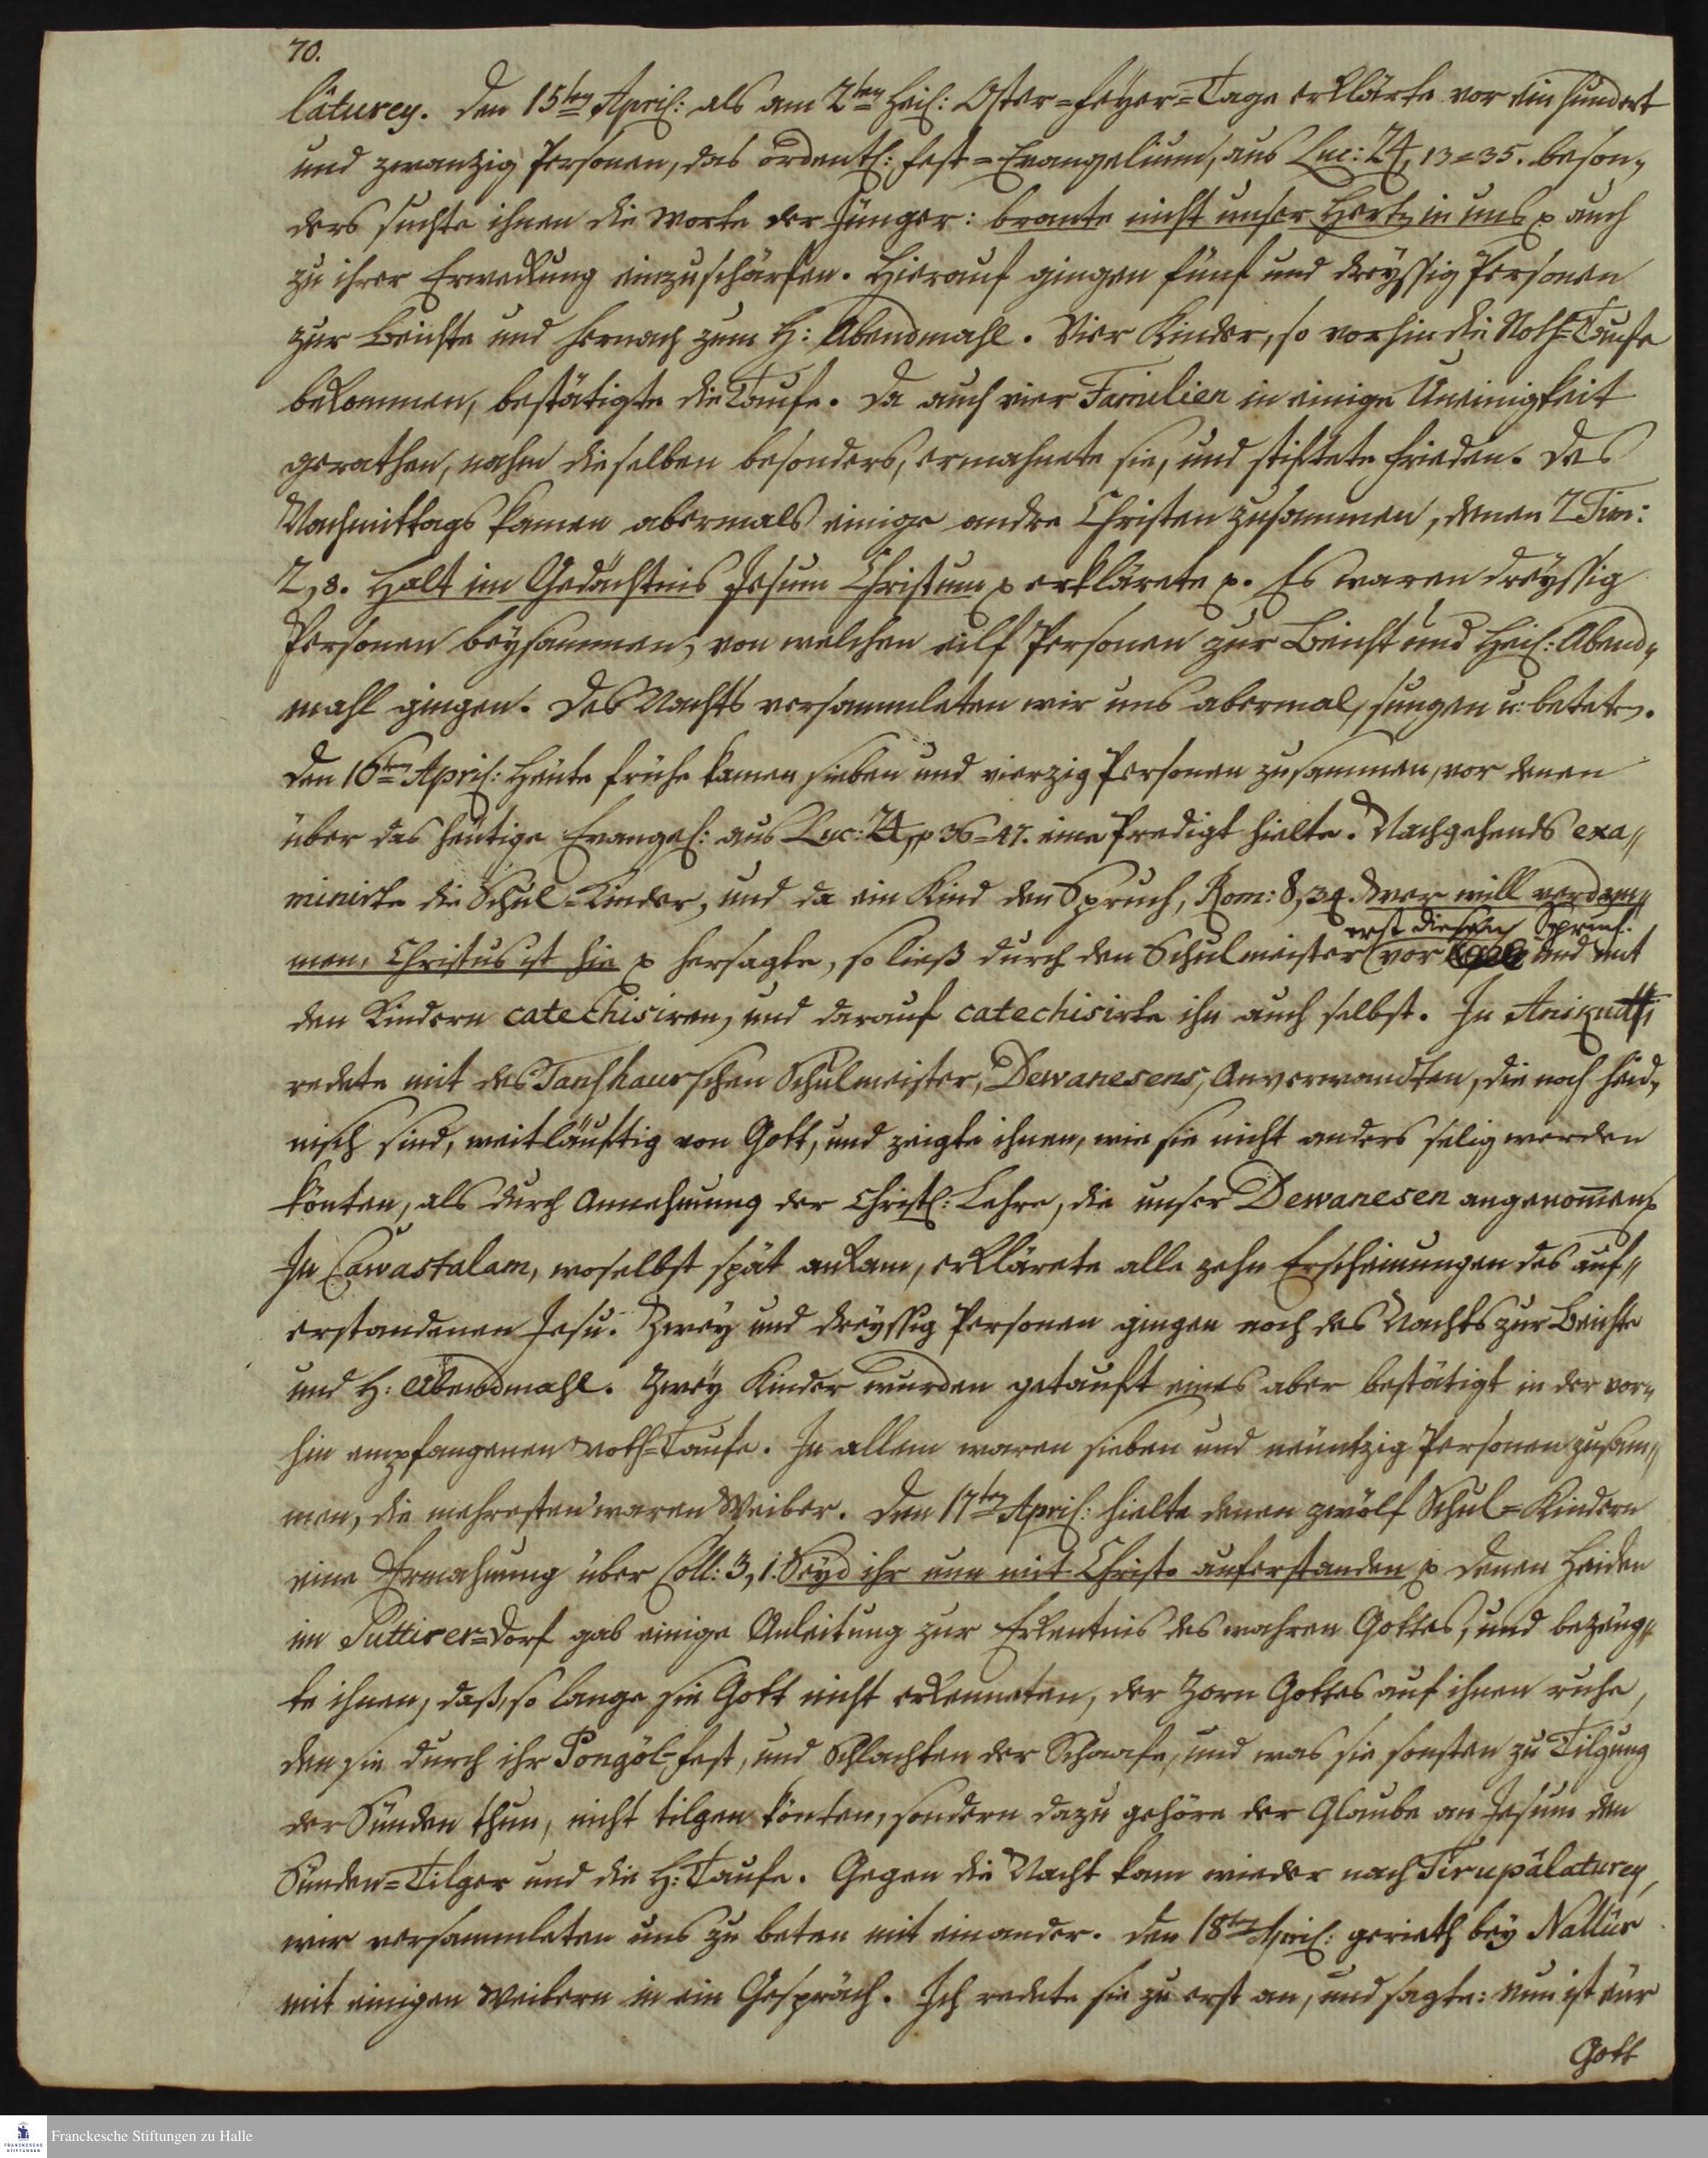 70.
lâturey. Den 15ten April: als am 2ten Heil: Oster=Feyer=Tage erklärte vor ein hundert
und zwantzig Personen, das ordentl: Fest=Evangelium, aus Luc: 24, 13=35. beson„
ders suchte ihnen die Worte der Jünger: brante nicht unser Hertz in uns p auch
zu ihrer Erweckung einzuschärfen. Hierauf gingen fünf und dreyssig Personen
zur Beichte und hernach zum H: Abendmahl. Vier Kinder, so vorhin die Noth=Taufe
bekommen, bestätigte die Taufe. Da auch vier Familien in einige Uneinigkeit
gerathen, nahm dieselben besonders, ermahnete sie, und stiftete Frieden. Des
Nachmittags kamen abermals einige andre Christen zusammen, denen 2 Tim:
2, 8. Halt im Gedächtnis Jesum Christum p erklärete p. Es waren dreyssig
Personen beysammen, von welchen eilf Personen zur Beicht und Heil: Abend„
mahl gingen. Des Nachts versammleten wir uns abermal, sungen u: beteten.
Den 16ten April: Heute frühe kamen sieben und vierzig Personen zusammen, vor denen
über das heutige Evangel: aus Luc: 24, p 36=47. eine Predigt hielte. Nachgehends exa„
minirte die Schul=Kinder, und da ein Kind den Spruch, Rom: 8, 34. Wer will verdam„
erst diesen Spruch
men, Christus ist hie p hersagte, so ließ durch den Schulmeister vor und mit
den Kindern catechisiren, und darauf catechisirte ihn auch selbst. In Anikutti
redete mit des Tanshaurschen Schulmeister, Dewanesens, Anverwandten, die noch heid„
nisch sind, weitläuftig von Gott, und zeigte ihnen, wie sie nicht anders selig werden
könten, als durch Annehmung der Christl: Lehre, die unser Dewanesen angenom̅en p
In Cawastalam, woselbst spät ankam, erklärete alle zehn Erscheinungen des auf„
erstandenen Jesu. Zwey und dreyssig Personen gingen noch des Nachts zur Beichte
und H: Abendmahl. Zwey Kinder wurden getauft eines aber bestätigt in der vor„
hin empfangenen Noth=Taufe. In allem waren sieben und neuntzig Personen zusam„
men, die mehresten waren Weiber. Den 17ten April: hielte denen zwölf Schul=Kindern
eine Ermahnung über Coll: 3, 1. Seyd ihr nun mit Christo auferstanden p denen Heiden
im Puttirer=Dorf gab einige Anleitung zur Erkentnis des wahren Gottes, und bezeug„
te ihnen, daß, so lange sie Gott nicht erkenneten, der Zorn Gottes auf ihnen ruhe,
den sie durch ihr Pongöl=Fest, und Schlachten der Schaafe, und was sie sonsten zu Tilgung
der Sünden thun, nicht tilgen könten, sondern dazu gehöre der Glaube an Jesum den
Sünden=Tilger und die H: Taufe. Gegen die Nacht kam wieder nach Tirupâlaturey,
wir versammleten uns zu beten mit einander. Den 18ten April: gerieth bey Nallûr
mit einigen Weibern in ein Gespräch. Ich redete sie zu erst an, und sagte: Nun ist eür
Gott
Franckesche Stiftungen zu Halle